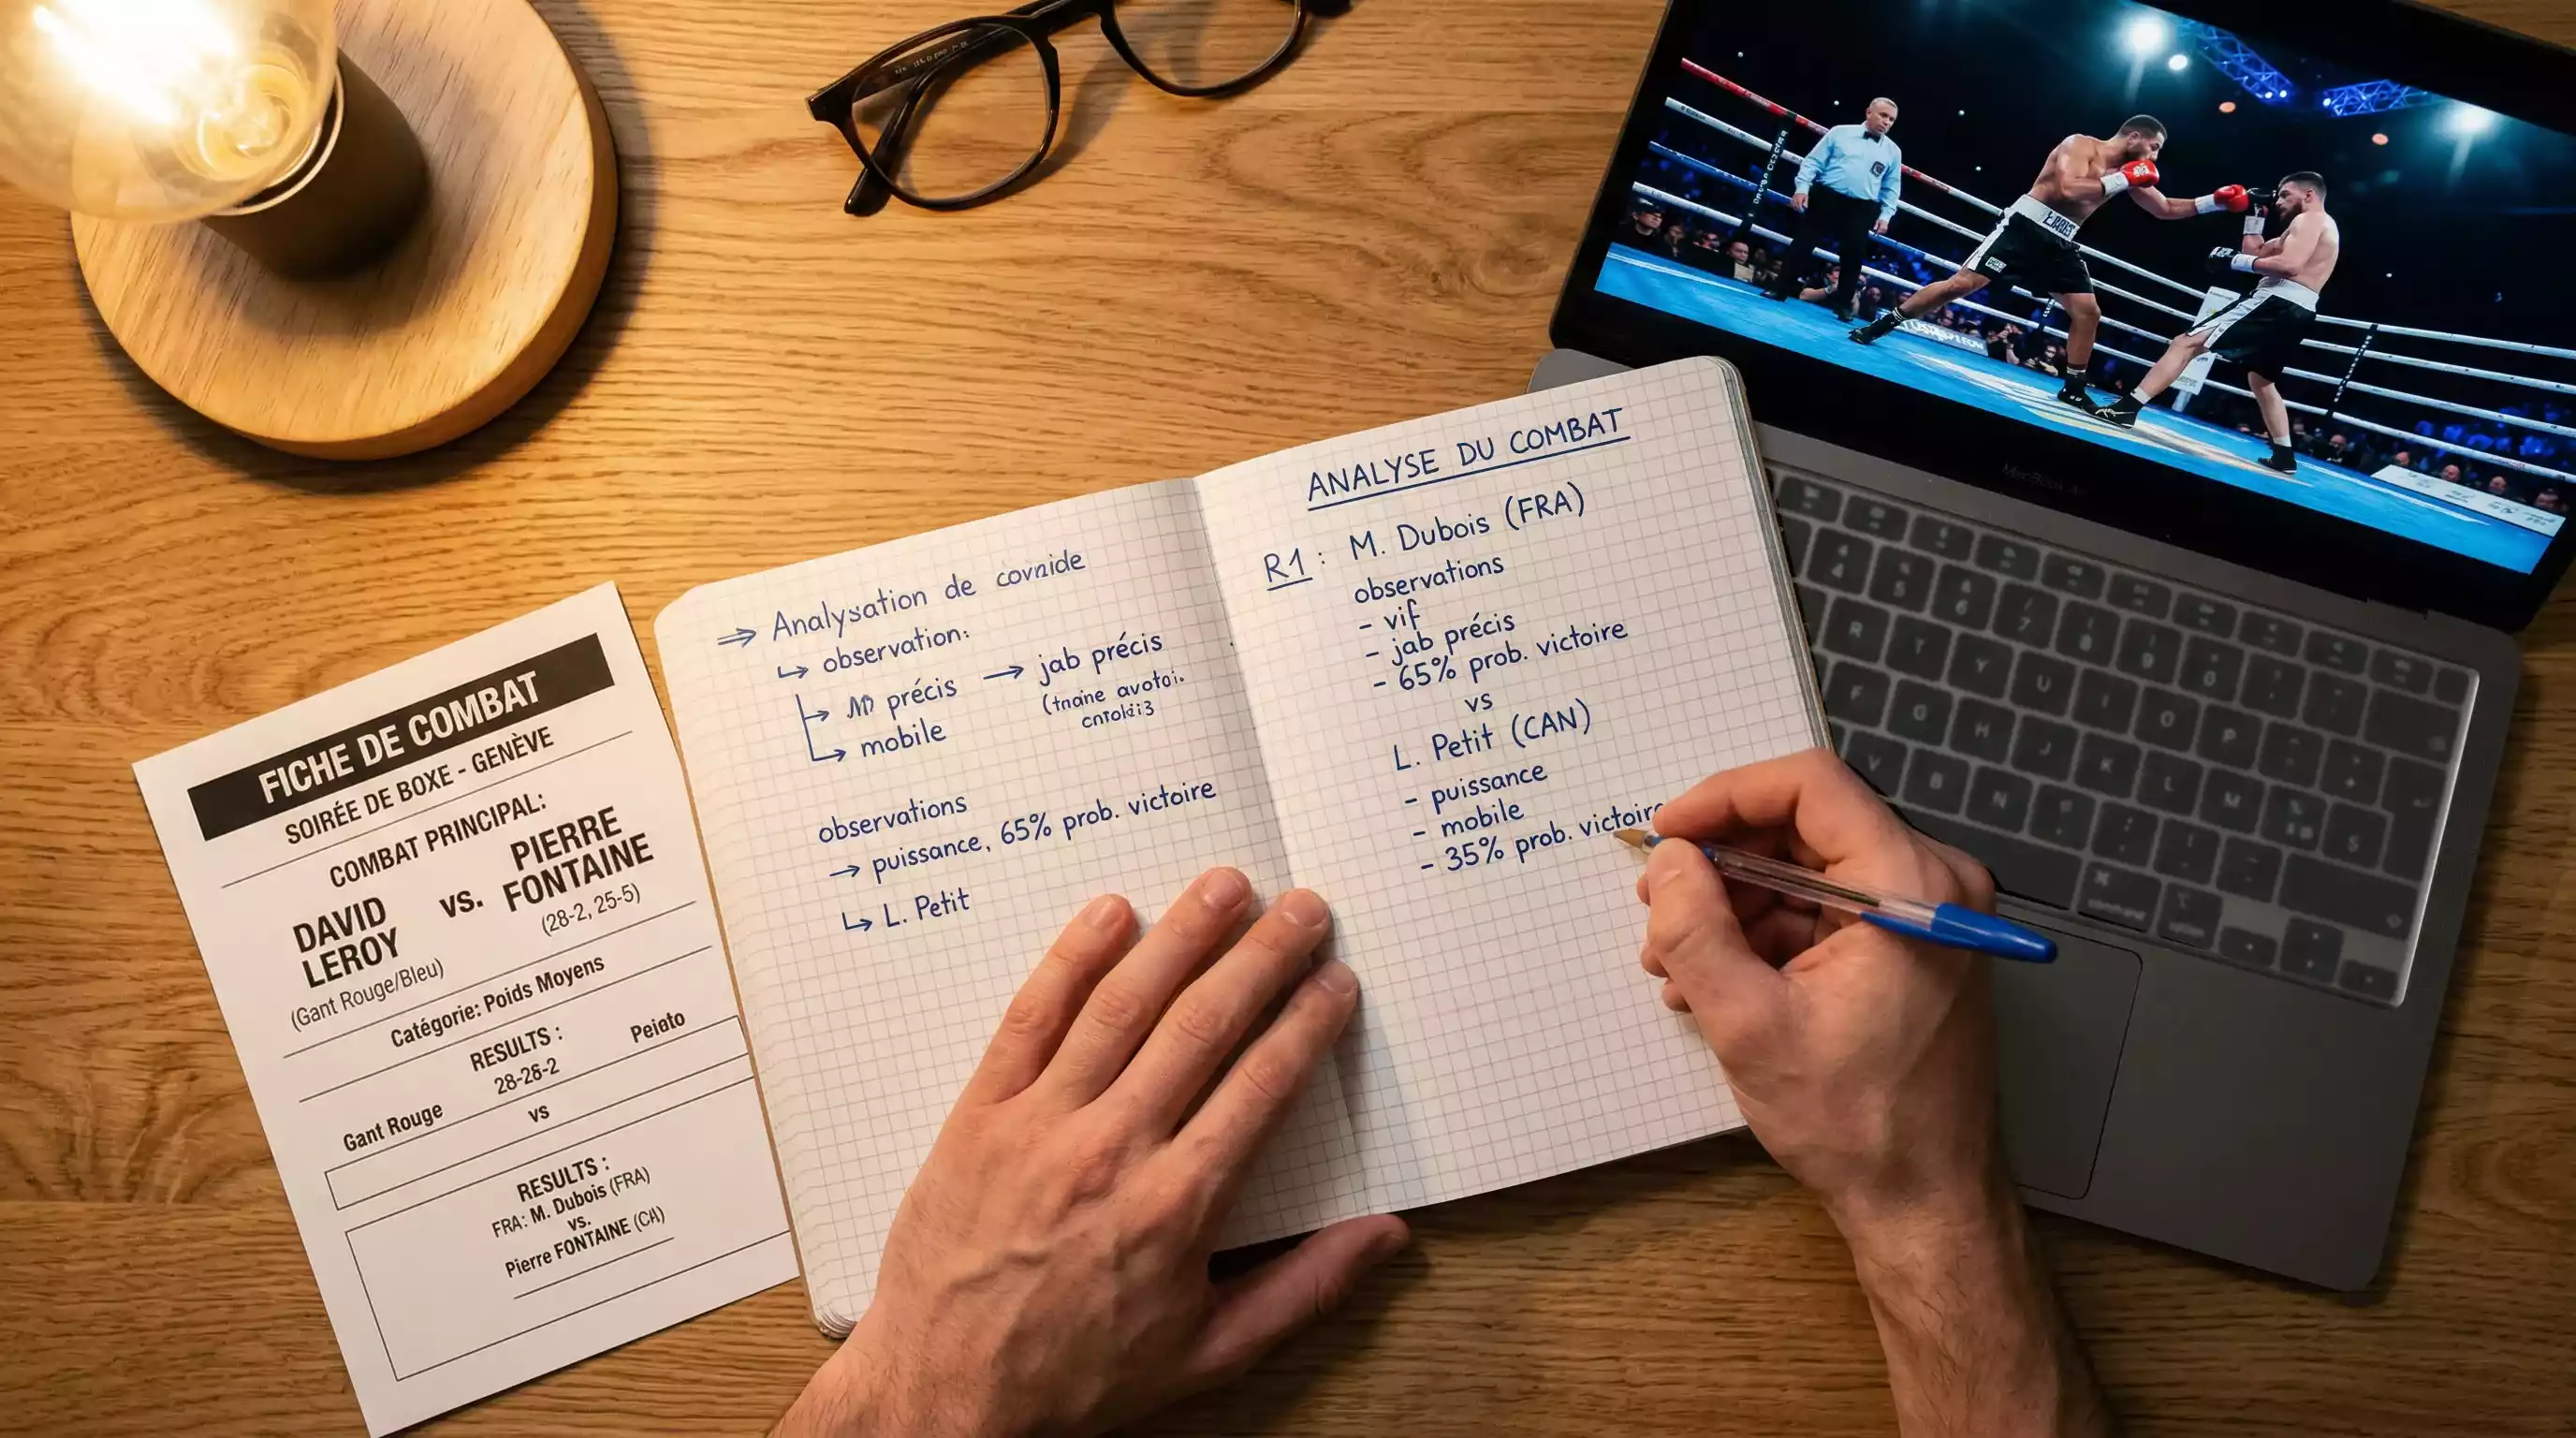 FICHE DE COMBAT
SOIRÉE DE BOXE - GENÈVE
COMBAT PRINCIPAL:
DAVID LEROY
vs.
PIERRE FONTAINE
(Gant Rouge/Bleu)
(28-2, 25-5)
Catégorie: Poids Moyens
RESULTS :
Peiəto
28-28-2
Gant Rouge
vs
RESULTS :
FRA: M. Dubois (FRA)
vs.
Pierre FONTAINE (CH)
⇒ Analysation de
↳ observation:
précis → jab précis
↳ mobile
observations
→ puissance, 65% prob. victoire
↳ L. Petit
ANALYSE DU COMBAT
R1 : M. Dubois (FRA)
observations
- vif
- jab précis
- 65% prob. victoire
vs
L. Petit (CAN)
- puissance
- mobile
- 35% prob. victoire